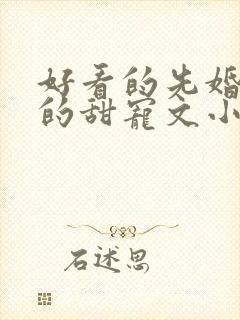 好看的先婚
的甜宠文小
石述思